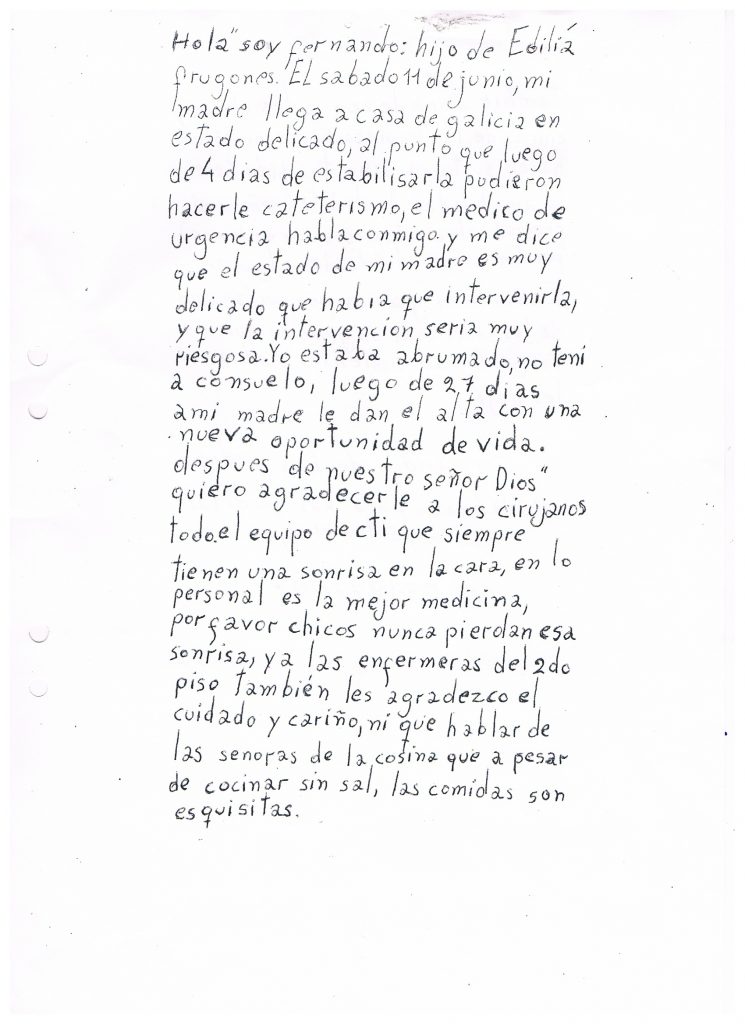 Hola" soy fernando: hijo de Ediliá
frugones. El sabado 11 de junio, mi
madre llega a casa de galicia en
estado delicado, al punto que luego
de 4 dias de estabilisarla pudieron
hacerle cateterismo, el medico de
urgencia habla conmigo y me dice
que el estado de mi madre es muy
delicado que habia que intervenirla,
y que la intervencion seria muy
riesgosa. Yo estaba abrumado, no teni
a consuelo, luego de 27 dias
a mi madre le dan el alta con una
nueva oportunidad de vida.
despues de nuestro señor Dios"
quiero agradecerle a los cirujanos
todo.el equipo de cti que siempre
tienen una sonrisa en la cara, en lo
personal es la mejor medicina,
por favor chicos nunca pierdan esa
sonrisa, y a las enfermeras del 2do
piso también les agradezco el
cuidado y cariño, ni que hablar de
las senoras de la cosina que a pesar
de cocinar sin sal, las comidas son
esquisitas.